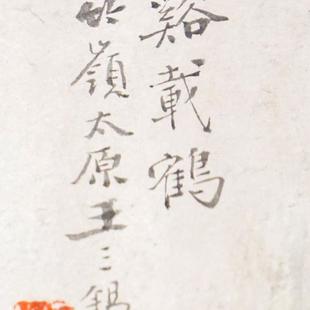 谿載鶴
嶺太原王三錫